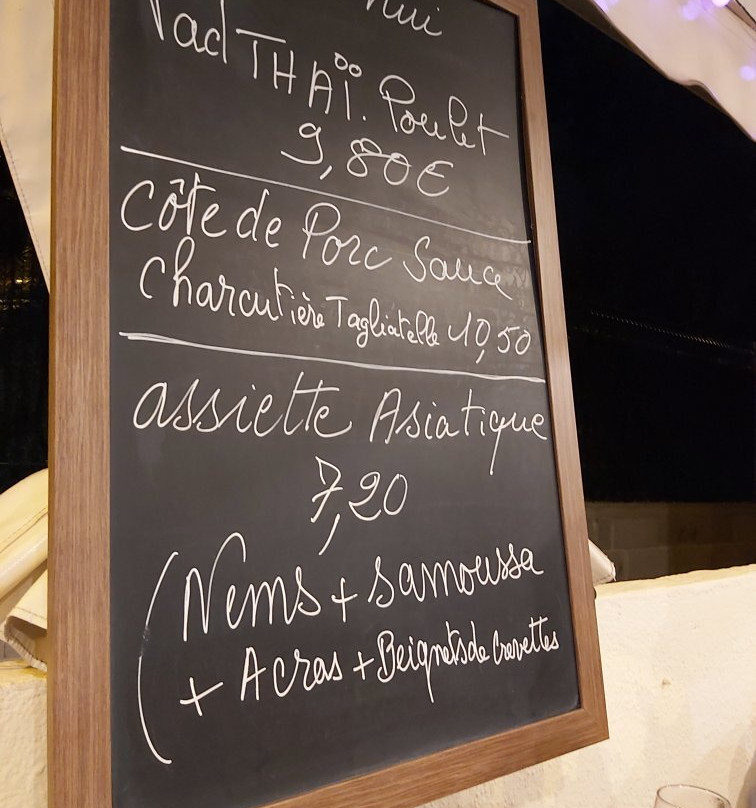 Pad THAÏ. Poulet
9,80€
Côte de Porc Sauce
Charcutière Tagliatelle 10,50
assiette Asiatique
7,20
(Nems + samoussa
+ Acras + Beignets de Crevettes